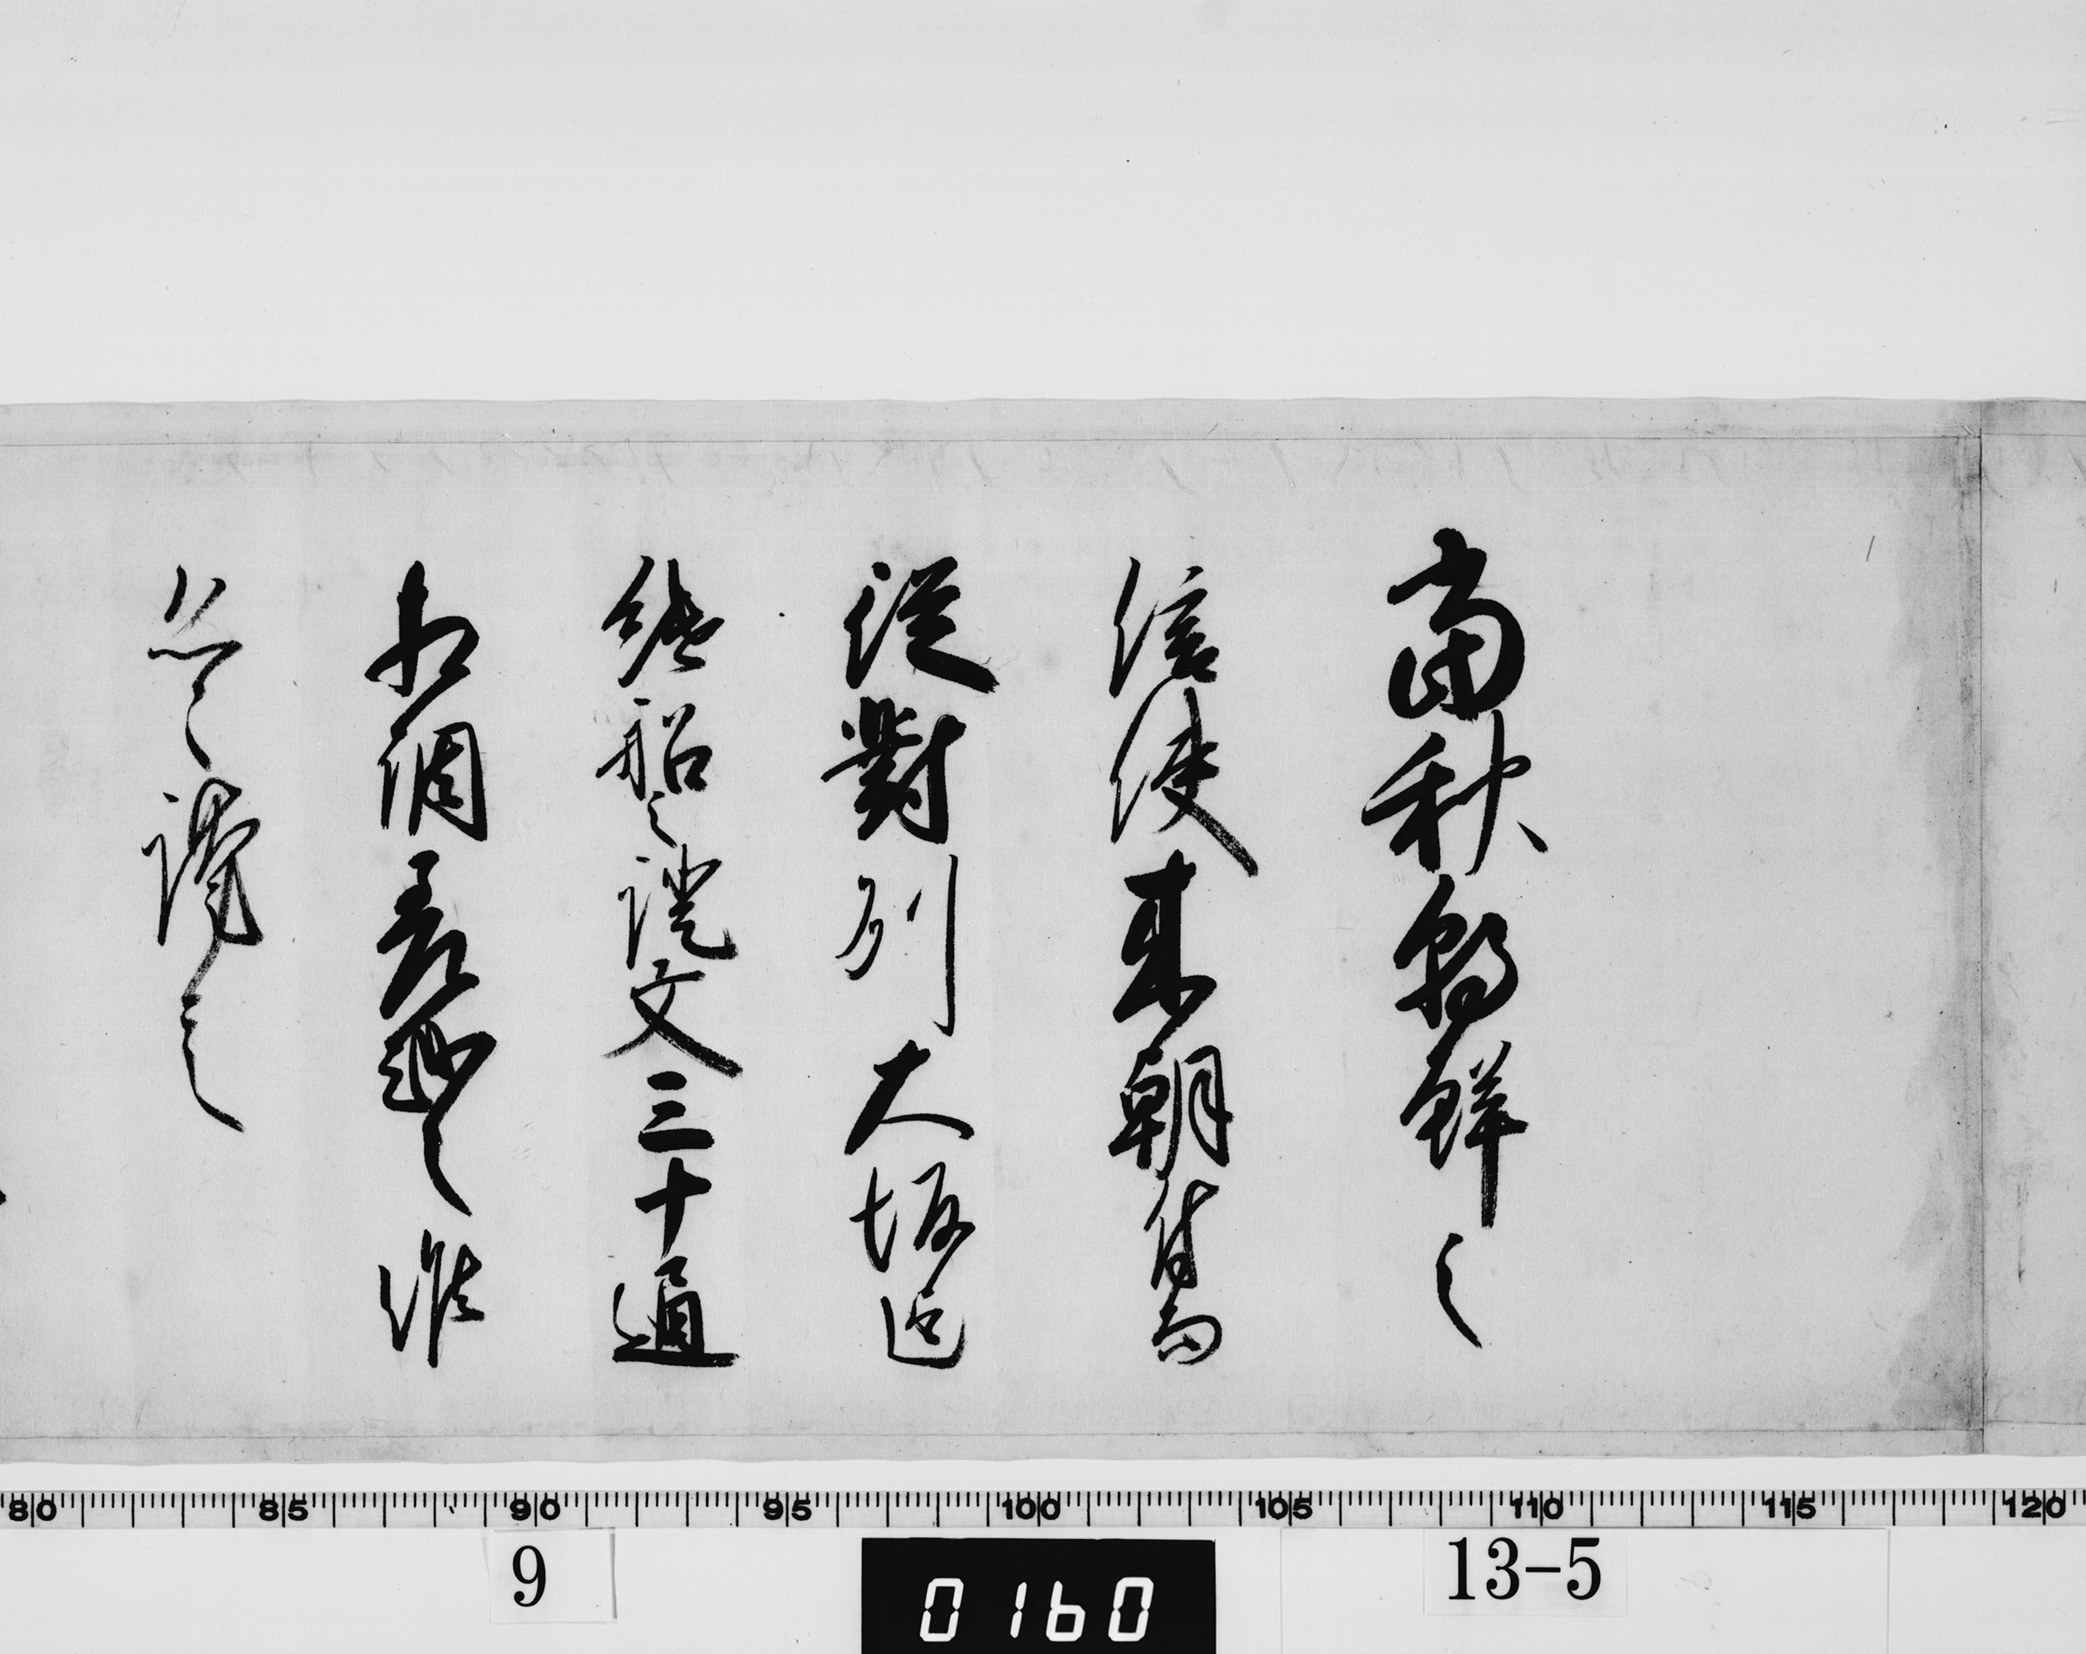 當秋朝鮮之
信使来朝付而
従對州大坂迄
継船之證文三十通
相調差越之候
恐々謹言
80 85 90 95 100 105 110 115 120
9
0160
13-5